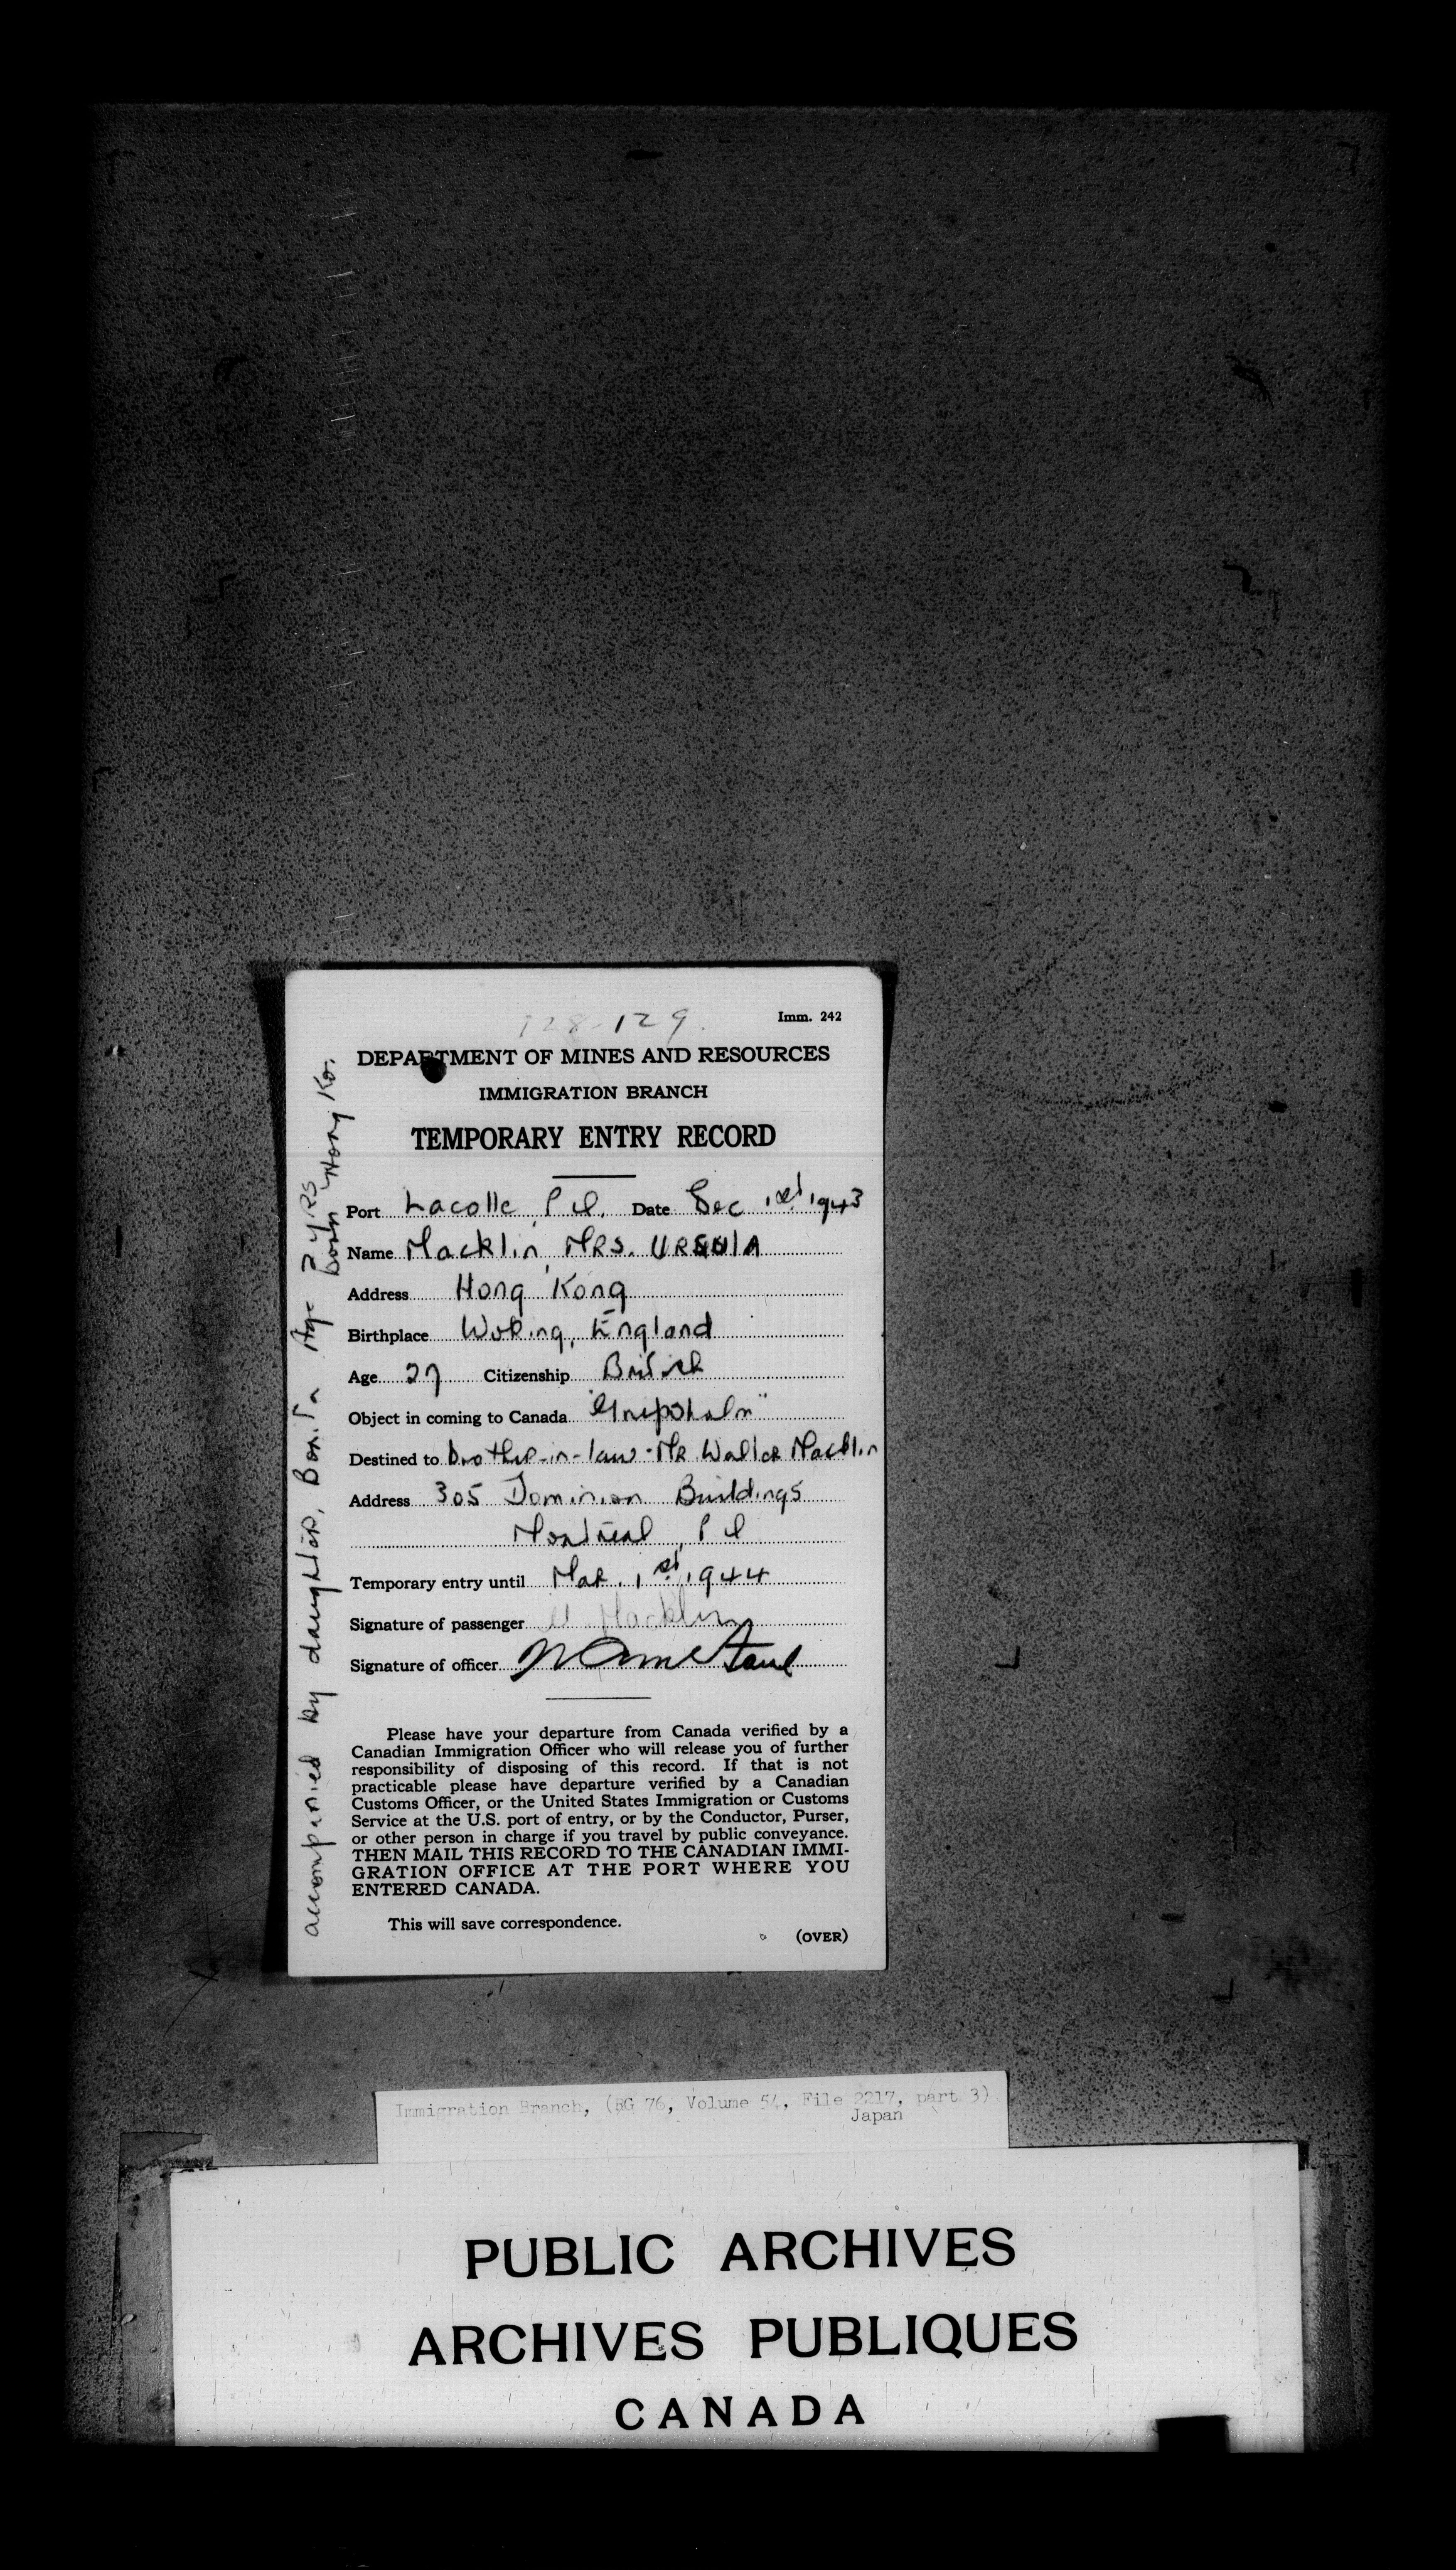 128-129.
Imm. 242
DEPARTMENT OF MINES AND RESOURCES
IMMIGRATION BRANCH
TEMPORARY ENTRY RECORD
Port Lacolle, P Q. Date Dec 1st 1943
Name Macklin, MRS. URSULA
Address Hong Kong
Birthplace Woking, England
Age 27 Citizenship British
Object in coming to Canada "Gripsholm"
Destined to brother-in-law - Mr. Walter Macklin
Address 305 Dominion Buildings
Montreal, P Q
Temporary entry until Mar. 1st, 1944
Signature of passenger U Macklin
Signature of officer
Please have your departure from Canada verified by a
Canadian Immigration Officer who will release you of further
responsibility of disposing of this record. If that is not
practicable please have departure verified by a Canadian
Customs Officer, or the United States Immigration or Customs
Service at the U.S. port of entry, or by the Conductor, Purser,
or other person in charge if you travel by public conveyance.
THEN MAIL THIS RECORD TO THE CANADIAN IMMI-
GRATION OFFICE AT THE PORT WHERE YOU
ENTERED CANADA.
This will save correspondence.
(OVER)
accompanied by daughter, Bonita Age 2 YRS
born Hong Ko.
Immigration Branch, (RG 76, Volume 54, File 2217, part 3)
Japan
PUBLIC ARCHIVES
ARCHIVES PUBLIQUES
CANADA